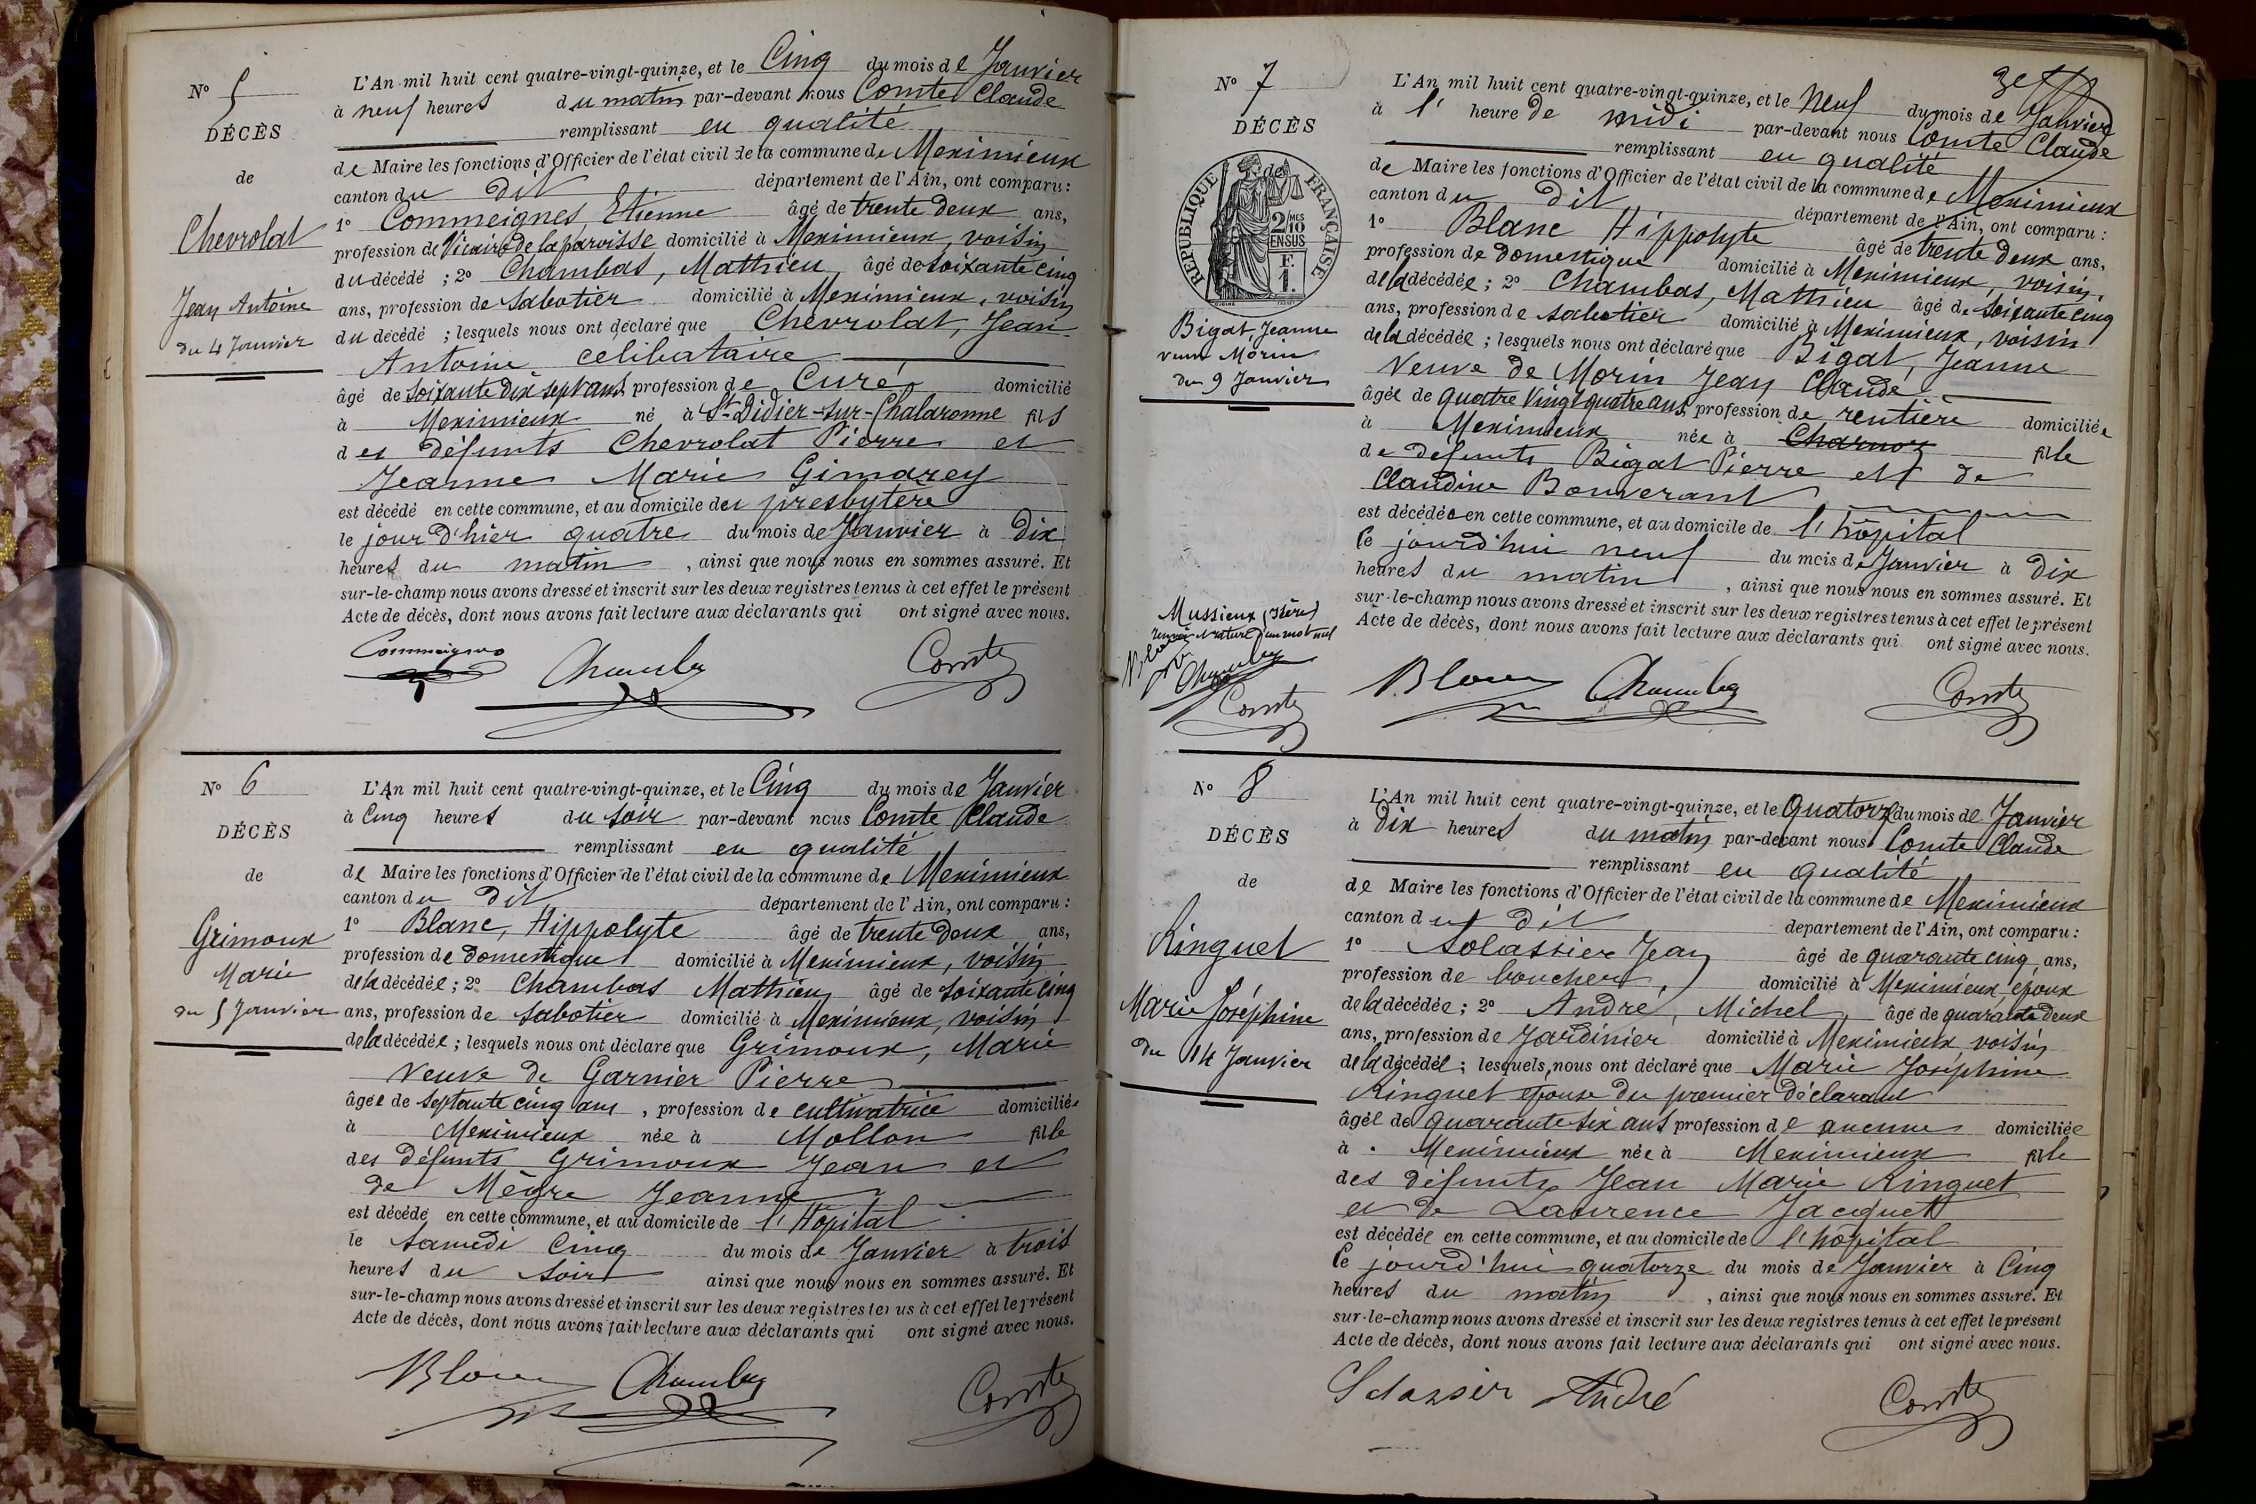 N° 5
DÉCÈS
de
Chevrolat
Jean Antoine
du 4 Janvier
L'An mil huit cent quatre-vingt-quinze, et le Cinq du mois de Janvier
à neuf heures du matin par-devant nous Comte Claude
remplissant en qualité
de Maire les fonctions d'Officier de l'état civil de la commune de Meximieux
canton du dit département de l'Ain, ont comparu :
1° Commeignes Etienne âgé de trente deux ans,
profession de Vicaire de la paroisse domicilié à Meximieux, voisin
du décédé ; 2° Chambas, Mathieu âgé de soixante cinq
ans, profession de sabotier domicilié à Meximieux, voisin
du décédé ; lesquels nous ont déclaré que Chevrolat, Jean
Antoine célibataire
âgé de soixante dix sept ans profession de Curé domicilié
à Meximieux né à St Didier-sur-Chalaronne fils
des défunts Chevrolat Pierre et
Jeanne Marie Gimarey
est décédé en cette commune, et au domicile du presbytère
le jour d'hier quatre du mois de Janvier à Dix
heures du matin, ainsi que nous nous en sommes assuré. Et
sur-le-champ nous avons dressé et inscrit sur les deux registres tenus à cet effet le présent
Acte de décès, dont nous avons fait lecture aux déclarants qui ont signé avec nous.
Chambas Comte
N° 6
DÉCÈS
de
Grimoux
Marie
du 5 Janvier
L'An mil huit cent quatre-vingt-quinze, et le Cinq du mois de Janvier
à Cinq heures du soir par-devant nous Comte Claude
remplissant en qualité
de Maire les fonctions d'Officier de l'état civil de la commune de Meximieux
canton du dit département de l'Ain, ont comparu :
1° Blanc, Hippolyte âgé de trente deux ans,
profession de domestique domicilié à Meximieux, voisin
de la décédée ; 2° Chambas Mathieu âgé de soixante cinq
ans, profession de sabotier domicilié à Meximieux, voisin
de la décédée ; lesquels nous ont déclaré que Grimoux, Marie
Veuve de Garnier Pierre
âgée de septante cinq ans, profession de cultivatrice domiciliée
à Meximieux née à Mollon fille
des défunts Grimoux Jean et
de Mègre Jeanne
est décédé en cette commune, et au domicile de l'Hôpital
le samedi cinq du mois de Janvier à trois
heures du soir ainsi que nous nous en sommes assuré. Et
sur-le-champ nous avons dressé et inscrit sur les deux registres tenus à cet effet le présent
Acte de décès, dont nous avons fait lecture aux déclarants qui ont signé avec nous.
Blanc Chambas Comte
3e
N° 7
DÉCÈS
de
RÉPUBLIQUE FRANÇAISE
2/10 MES
EN SUS
F.
1.
Bigat, Jeanne
veuve Morin
du 9 Janvier
L'An mil huit cent quatre-vingt-quinze, et le Neuf du mois de Janvier
à l' heure de midi par-devant nous Comte Claude
remplissant en qualité
de Maire les fonctions d'Officier de l'état civil de la commune de Meximieux
canton du dit département de l'Ain, ont comparu :
1° Blanc Hippolyte âgé de trente deux ans,
profession de domestique domicilié à Meximieux, voisin,
de la décédée ; 2° Chambas, Mathieu âgé de soixante cinq
ans, profession de sabotier domicilié à Meximieux, voisin
de la décédée ; lesquels nous ont déclaré que Bigat, Jeanne
Veuve de Morin Jean Claude
âgée de quatre vingt quatre ans, profession de rentière domiciliée
à Meximieux née à Charnoz fille
de défunts Bigat Pierre et de
Claudine Bouverant
est décédée en cette commune, et au domicile de l'hôpital
le jourd'hui neuf du mois de Janvier à dix
heures du matin, ainsi que nous nous en sommes assuré. Et
sur-le-champ nous avons dressé et inscrit sur les deux registres tenus à cet effet le présent
Acte de décès, dont nous avons fait lecture aux déclarants qui ont signé avec nous.
Mussieux (Isère)
un mot nul
Chambas
Comte
Blanc Chambas Comte
N° 8
DÉCÈS
de
Ringuet
Marie Joséphine
du 14 Janvier
L'An mil huit cent quatre-vingt-quinze, et le Quatorze du mois de Janvier
à Dix heures du matin par-devant nous Comte Claude
remplissant en qualité
de Maire les fonctions d'Officier de l'état civil de la commune de Meximieux
canton du dit département de l'Ain, ont comparu :
1° Solassier Jean âgé de quarante cinq ans,
profession de boucher, domicilié à Meximieux, époux
de la décédée ; 2° André, Michel, âgé de quarante deux
ans, profession de Jardinier domicilié à Meximieux voisin
de la décédée ; lesquels nous ont déclaré que Marie Joséphine
Ringuet épouse du premier déclarant
âgée de quarante six ans profession de aucune domiciliée
à Meximieux née à Meximieux fille
des défunts Jean Marie Ringuet
et de Laurence Jacquet
est décédée en cette commune, et au domicile de l'hôpital
le jourd'hui quatorze du mois de Janvier à Cinq
heures du matin, ainsi que nous nous en sommes assuré. Et
sur-le-champ nous avons dressé et inscrit sur les deux registres tenus à cet effet le présent
Acte de décès, dont nous avons fait lecture aux déclarants qui ont signé avec nous.
Solassier André Comte